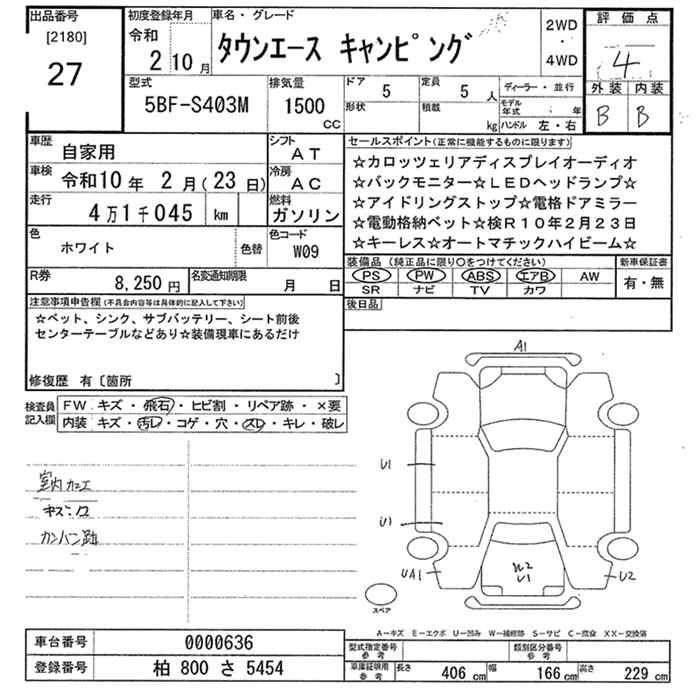 出品番号
[2180]
27
初度登録年月
令和
2 10 月
車名・グレード
タウンエース キャンピング
2WD
・
4WD
評価点
4
外装 内装
B B
型式
5BF-S403M
排気量
1500
CC
ドア 5
形状
定員 5 人
積載 kg
ディーラー・並行
モデル年式 ・ 年
ハンドル 左・右
車歴 自家用
シフト AT
車検 令和10年 2月(23日)
冷房 AC
走行 4万1千045 km
燃料 ガソリン
色 ホワイト
色替
色コード W09
R券 8,250円
名変通知期限 月 日
セールスポイント(正常に機能するものに限ります)
☆カロッツェリアディスプレイオーディオ
☆バックモニター☆LEDヘッドランプ☆
☆アイドリングストップ☆電格ドアミラー
☆電動格納ベット☆検R10年2月23日
☆キーレス☆オートマチックハイビーム☆
装備品(純正品に限り○をつけてください)
PS PW ABS エアB AW
SR ナビ TV カワ
新車保証書
有・無
後日品
注意事項申告欄(不具合内容等は具体的に記入して下さい)
☆ベット、シンク、サブバッテリー、シート前後
センターテーブルなどあり☆装備現車にあるだけ
修復歴 有〔箇所 〕
検査員記入欄
FW キズ・飛石・ヒビ割・リペア跡・×要
内装 キズ・汚レ・コゲ・穴・スレ・キレ・破レ
室内カエ
キズ・穴
カンバン跡
A1
U1
U1
UA1
W2
U1
U2
スペア
A-キズ E-エクボ U-凹み W-補修跡 S-サビ C-腐食 XX-交換済
車台番号 0000636
登録番号 柏 800 さ 5454
型式指定番号 参考
類別区分番号 参考
車庫証明用 参考
長さ 406 cm
幅 166 cm
高さ 229 cm